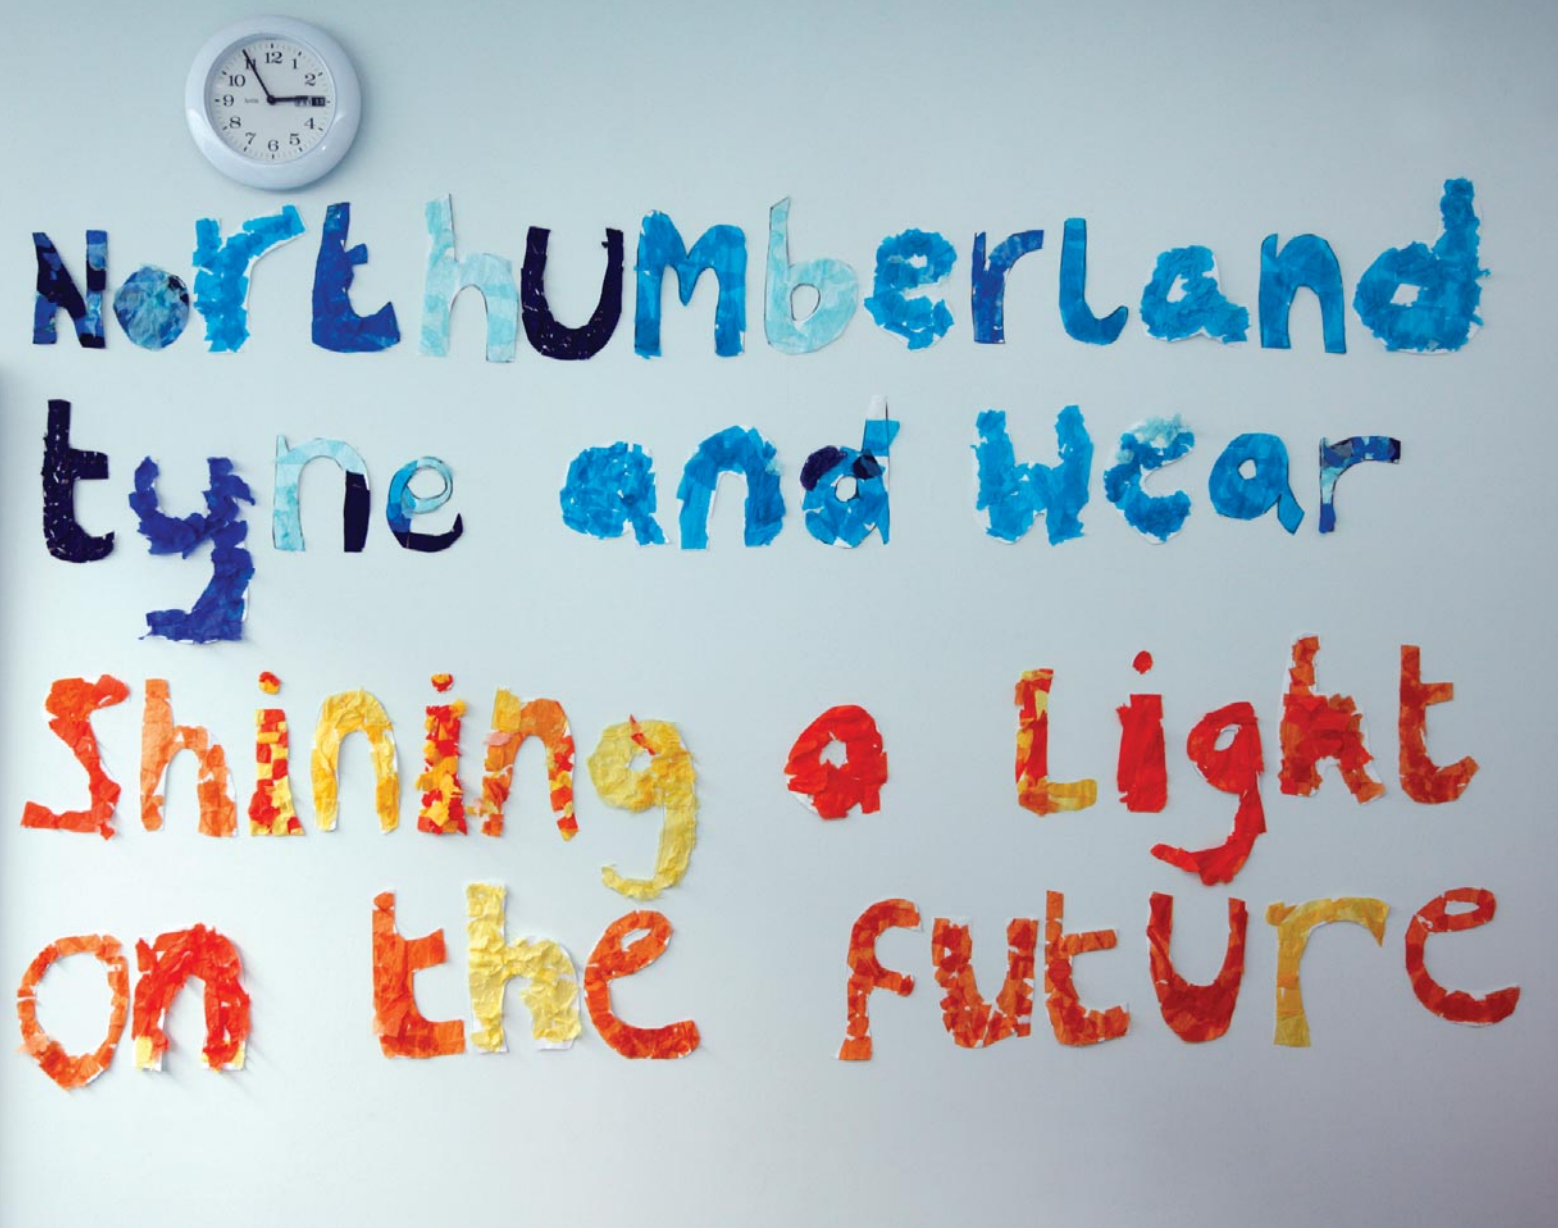 12
1
2
4
5
6
7
8
9
10
11
Northumberland
tyne and Wear
Shining a Light
on the future